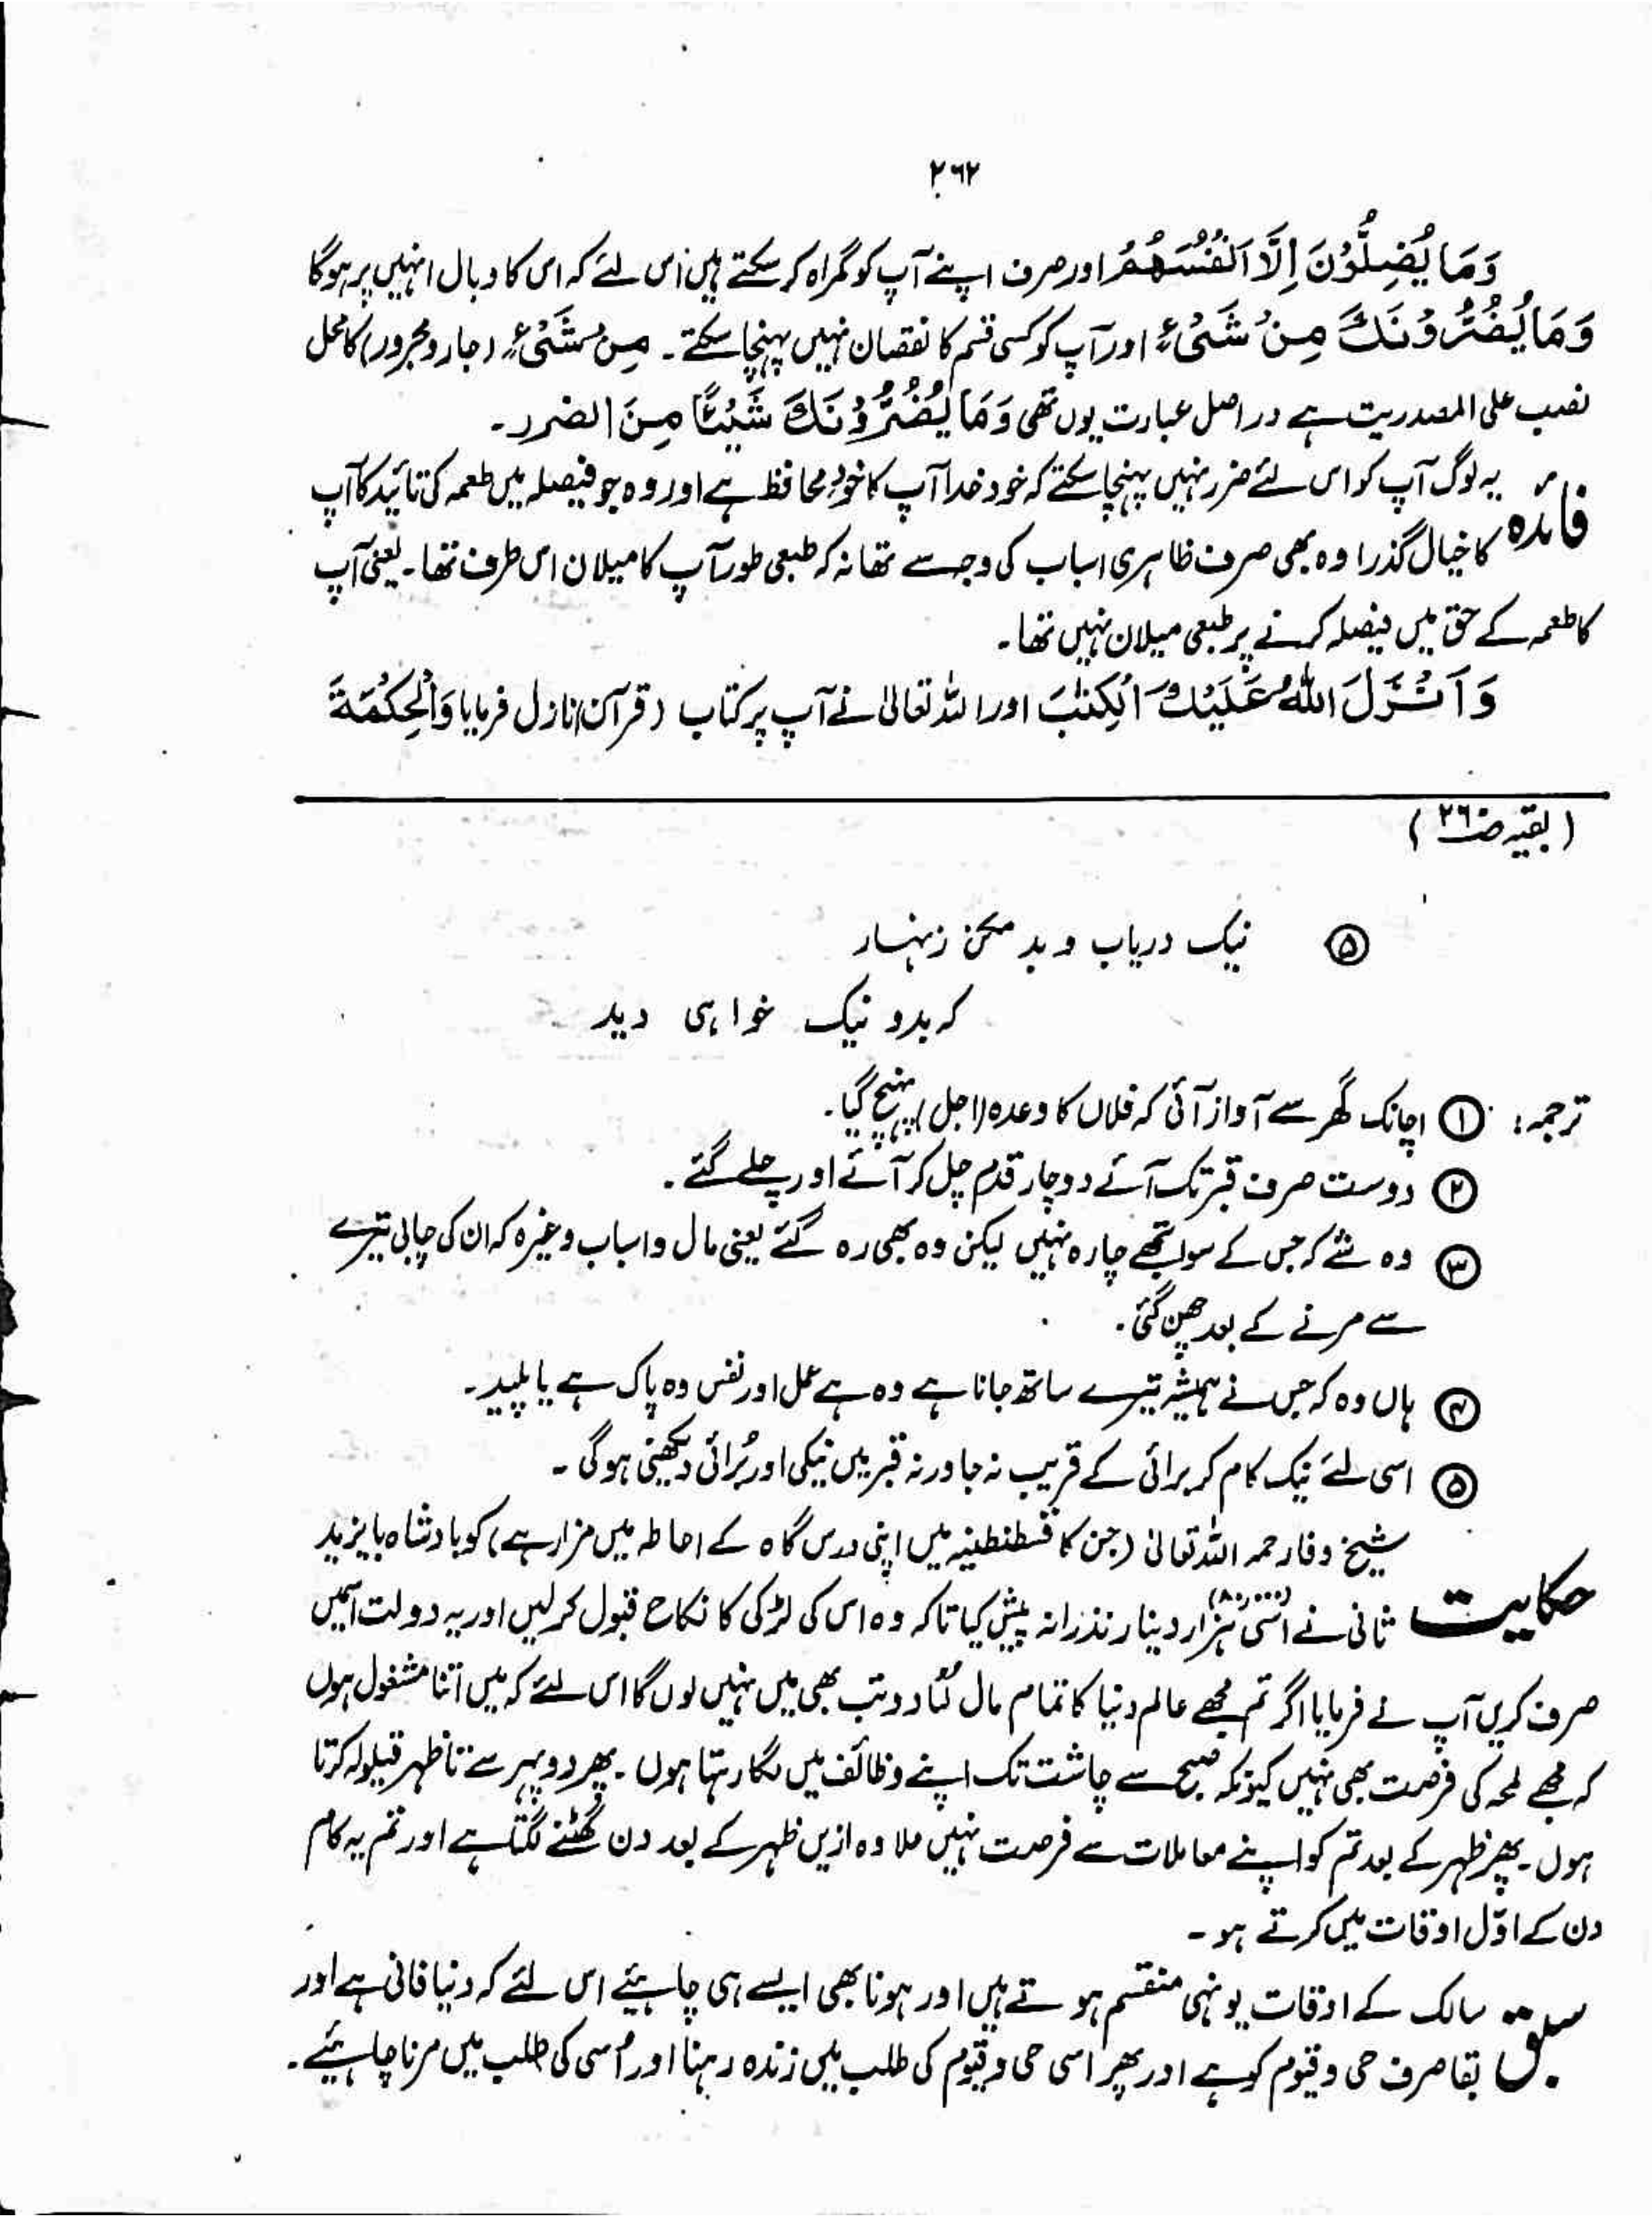 ٢٦٢
وَمَا يُضِلُّوْنَ اِلَّا اَنْفُسَهُمْ اور صرف اپنے آپ کو گمراہ کر سکتے ہیں اس لئے کہ اس کا وبال انہیں پر ہوگا
وَمَا يَضُرُّوْنَكَ مِنْ شَىْءٍ اور آپ کو کسی قسم کا نقصان نہیں پہنچا سکتے۔ مِنْ شَىْءٍ (جار و مجرور) کا محل
نصب علی المصدریت ہے در اصل عبارت یوں تھی وَمَا يَضُرُّوْنَكَ شَيْئًا مِنَ الضرر۔
فائدہ یہ لوگ آپ کو اس لئے ضرر نہیں پہنچا سکتے کہ خود خدا آپ کا خود محافظ ہے اور وہ جو فیصلہ میں طعمہ کی تائید کا آپ
کا خیال گذرا وہ بھی صرف ظاہری اسباب کی وجہ سے تھا نہ کہ طبعی طور آپ کا میلان اس طرف تھا۔ یعنی آپ
کا طعمہ کے حق میں فیصلہ کرنے پر طبعی میلان نہیں تھا۔
وَاَنْزَلَ اللّٰهُ عَلَيْكَ الْكِتٰبَ اور اللہ تعالیٰ نے آپ پر کتاب (قرآن) نازل فرمایا وَالْحِكْمَةَ
(بقیہ صـ٢٦)
⑤ نیک دریاب و بد مکن زنہار
کہ بد و نیک خواہی دید
ترجمہ: ① اچانک گھر سے آواز آئی کہ فلاں کا وعدہ (اجل) پہنچ گیا۔
② دوست صرف قبر تک آئے دو چار قدم چل کر آئے اور چلے گئے۔
③ وہ شے کہ جس کے سوا تجھے چارہ نہیں لیکن وہ بھی رہ گئے یعنی مال و اسباب وغیرہ کہ ان کی چابی تیرے
سے مرنے کے بعد چھن گئی۔
④ ہاں وہ کہ جس نے ہمیشہ تیرے ساتھ جانا ہے وہ ہے عمل اور نفس وہ پاک ہے یا پلید۔
⑤ اسی لئے نیک کام کر برائی کے قریب نہ جا ورنہ قبر میں نیکی اور بُرائی دیکھنی ہوگی۔
حکایت شیخ وفا رحمہ اللہ تعالیٰ (جن کا قسطنطنیہ میں اپنی درس گاہ کے احاطہ میں مزار ہے) کو بادشاہ بایزید
ثانی نے اسّی ہزار (٨٠،٠٠٠) دینار نذرانہ پیش کیا تاکہ وہ اس کی لڑکی کا نکاح قبول کر لیں اور یہ دولت اسمیں
صرف کریں آپ نے فرمایا اگر تم مجھے عالم دنیا کا تمام مال لُٹا دو تب بھی میں نہیں لوں گا اس لئے کہ میں اتنا مشغول ہوں
کہ مجھے لمحہ کی فرصت بھی نہیں کیونکہ صبح سے چاشت تک اپنے وظائف میں لگا رہتا ہوں۔ پھر دوپہر سے تا ظہر قیلولہ کرتا
ہوں۔ پھر ظہر کے بعد تم کو اپنے معاملات سے فرصت نہیں علاوہ ازیں ظہر کے بعد دن گھٹنے لگتا ہے اور تم یہ کام
دن کے اوّل اوقات میں کرتے ہو۔
سبق سالک کے اوقات یونہی منقسم ہوتے ہیں اور ہونا بھی ایسے ہی چاہیئے اس لئے کہ دنیا فانی ہے اور
بقا صرف حی و قیوم کو ہے اور پھر اسی حی و قیوم کی طلب میں زندہ رہنا اور اُسی کی طلب میں مرنا چاہیئے۔